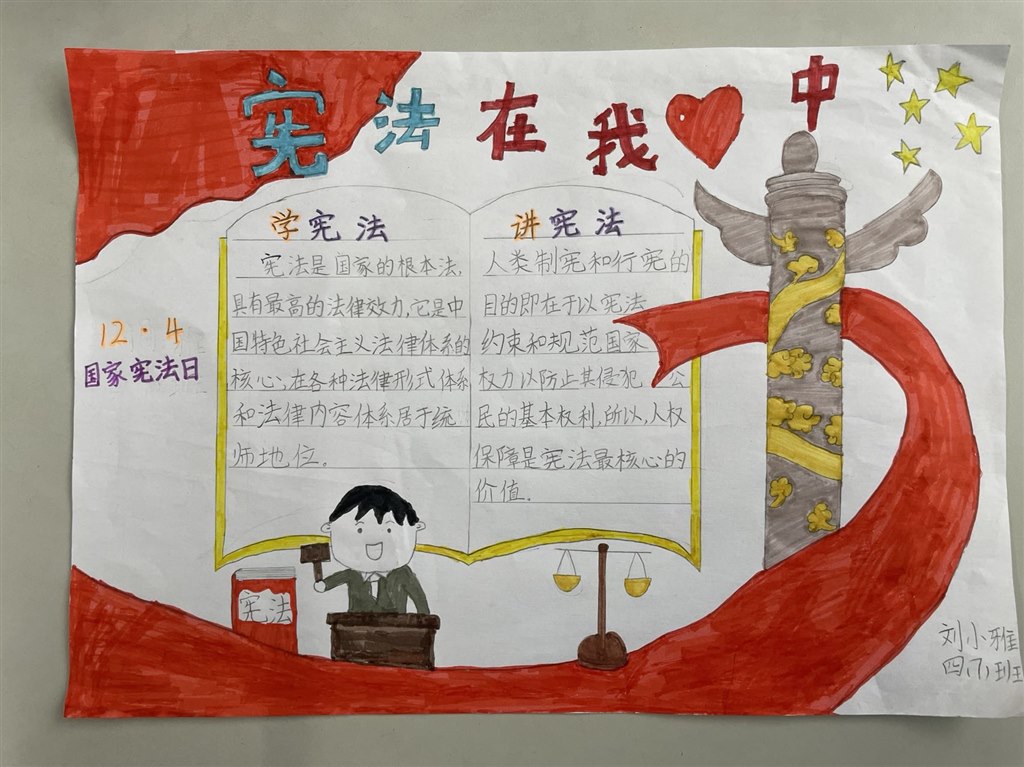 宪法在我中
学宪法
宪法是国家的根本法,
具有最高的法律效力,它是中
国特色社会主义法律体系的
核心、在各种法律形式体系
和法律内容体系居于统
师地位。
讲宪法
人类制宪和行宪的
目的即在于以宪法
约束和规范国家
权力以防止其侵犯公
民的基本权利,所以,人权
保障是宪法最核心的
价值.
12·4
国家宪法日
宪法
刘小雅